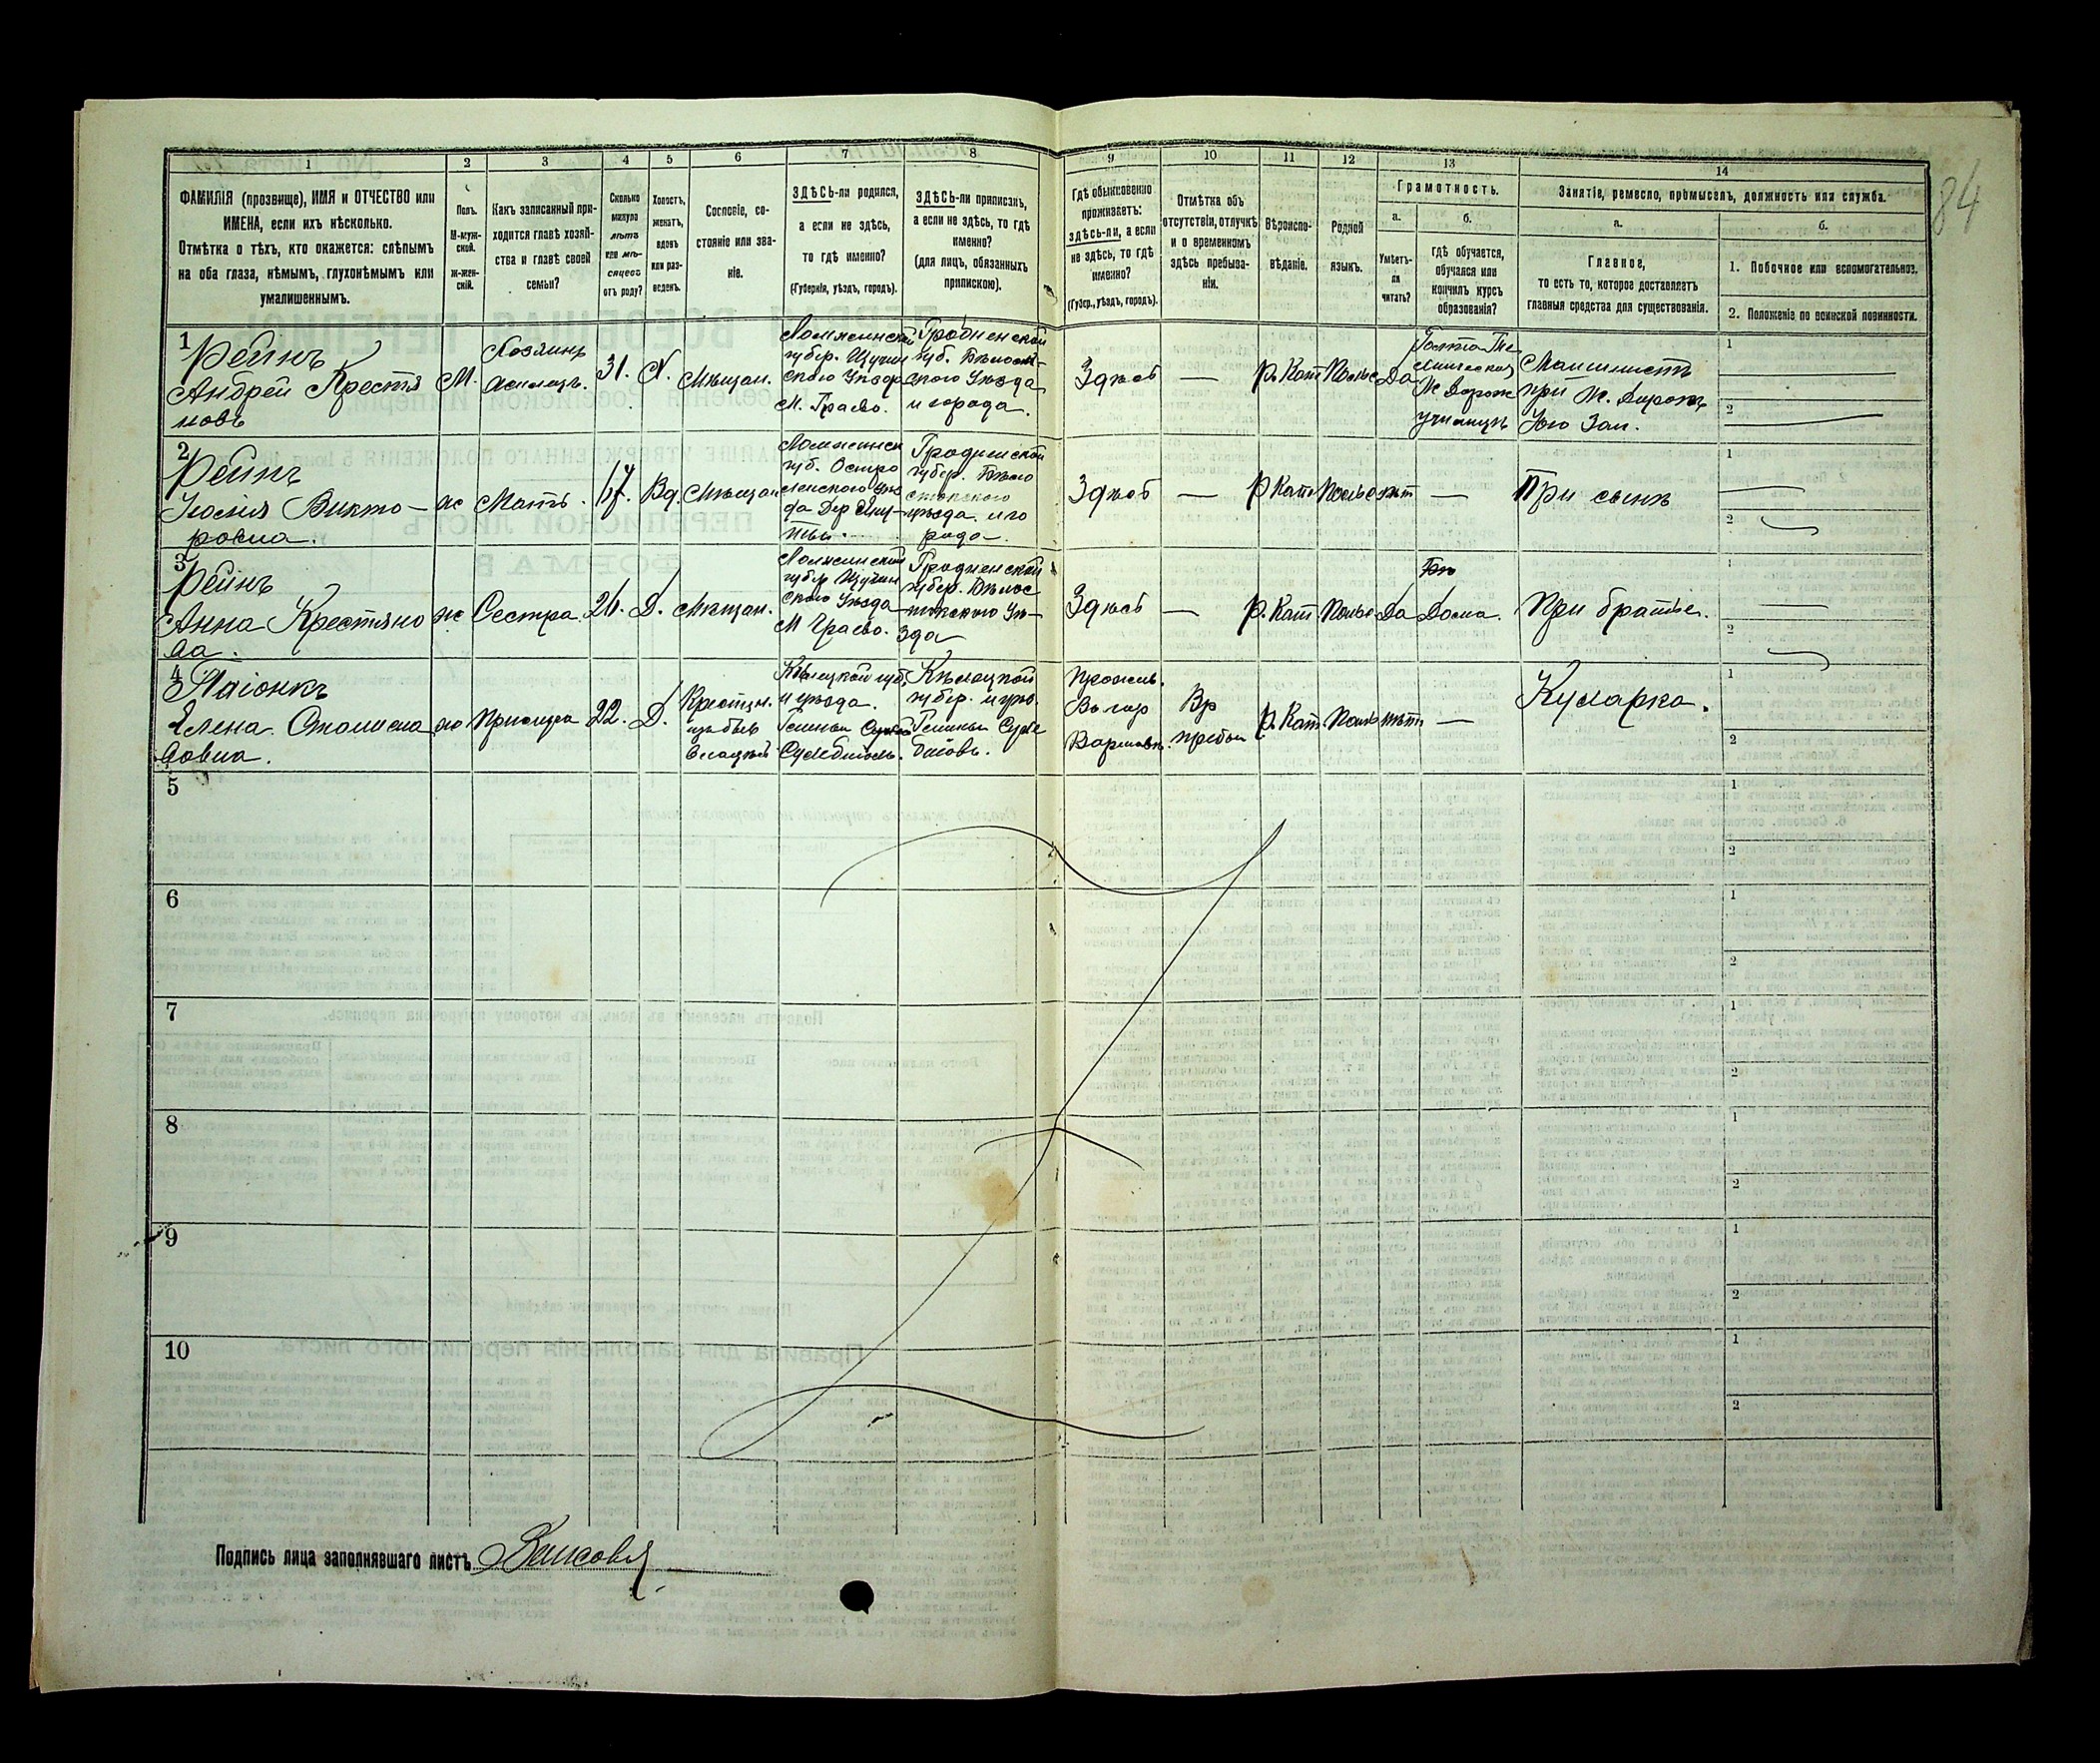 84
1
2
3
4
5
6
7
8
9
10
11
12
13
14
ФАМИЛІЯ (прозвище), ИМЯ и ОТЧЕСТВО или
ИМЕНА, если ихъ нѣсколько.
Отмѣтка о тѣхъ, кто окажется: слѣпымъ
на оба глаза, нѣмымъ, глухонѣмымъ или
умалишеннымъ.
Полъ.
М-муж-
ской.
Ж-жен-
скій.
Какъ записанный при-
ходится главѣ хозяй-
ства и главѣ своей
семьи?
Сколько
минуло
лѣтъ
или мѣ-
сяцевъ
отъ роду?
Холостъ,
женатъ,
вдовъ
или раз-
веденъ.
Сословіе, со-
стояніе или зва-
ніе.
ЗДѢСЬ-ли родился,
а если не здѣсь,
то гдѣ именно?
(Губернія, уѣздъ, городъ).
ЗДѢСЬ-ли приписанъ,
а если не здѣсь, то гдѣ
именно?
(для лицъ, обязанныхъ
припискою).
Гдѣ обыкновенно
проживаетъ:
здѣсь-ли, а если
не здѣсь, то гдѣ
именно?
(Губер., уѣздъ, городъ).
Отмѣтка объ
отсутствіи, отлучкѣ
и о временномъ
здѣсь пребыва-
ніи.
Вѣроиспо-
вѣданіе.
Родной
языкъ.
Грамотность.
а.
б.
Умѣетъ-
ли
читать?
гдѣ обучается,
обучался или
кончилъ курсъ
образованія?
Занятіе, ремесло, промыселъ, должность или служба.
а.
б.
Главное,
то есть то, которое доставляетъ
главныя средства для существованія.
1. Побочное или вспомогательное.
2. Положеніе по воинской повинности.
1
Рейнъ
Андрей Крестья
новъ
М.
Хозяинъ
31.
Х.
Мѣщан.
Ломжинской
губер. Щучин
скаго Уѣзда
М. Граево.
Гродненской
губ. Бѣлост-
скаго Уѣзда
и города.
Здѣсь
—
р. Кат
Польс
Да
Ж Дорож
училищѣ
Машинистъ
при Ж. Дорогѣ
Юго Зап.
1
2
2
Рейнъ
Юлія Викто-
ровна.
ж
Мать.
Вд.
Мѣщан
Ломжинск
губ. Остро
ленскаго Уѣз
да Дер
Гродненской
губер. Бѣло
стокскаго
уѣзда. и го
рода.
Здѣсь
—
р Кат
Польс
нѣт
—
При сынѣ
1
2
3
Рейнъ
Анна Крестяно
ва.
ж
Сестра.
26.
Д.
Мѣщан.
Ломжинской
губер Щучин
скаго Уѣзда
М Граево.
Гродненской
губер. Бѣлос
токскаго Уѣ-
зда
Здѣсь
—
р. Кат
Польс
Да
Дома.
При братѣ.
1
2
4
Елена Станисла
вовна.
ж
Прислуга
22.
Д.
Крестьян.
изъ быв
Владѣл
Кѣлецкой губ.
и уѣзда.
Гмины
Кѣлецкой
губер. и уѣз.
Гмины
Прожив.
Въ гор
Варшавѣ.
Вр
пребыв
р. Кат
Польс
нѣтъ
—
Кухарка.
1
2
5
1
2
6
1
2
7
1
2
8
1
2
9
1
2
10
1
2
Подпись лица заполнявшаго листъ